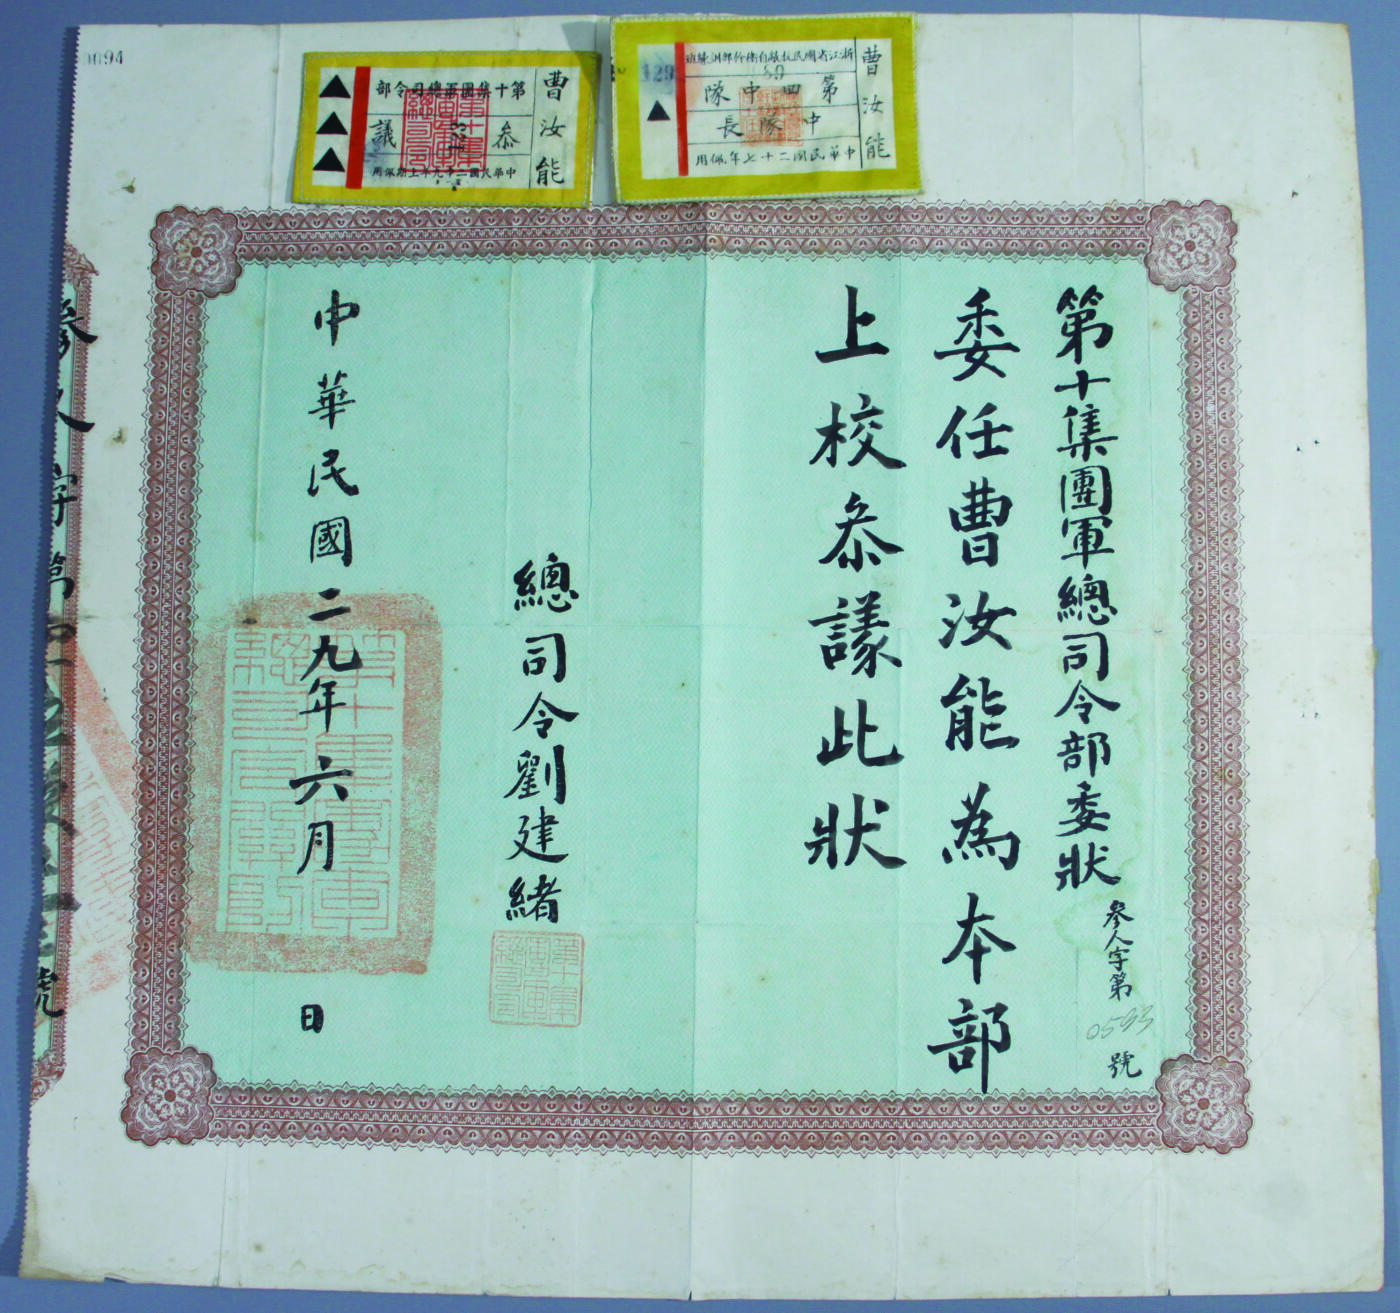 0094
曹汝能
第十集團軍總司令部
叅議
中華民國二十九年上期佩用
曹汝能
浙江省國民抗敵自衛幹部訓練班
第四中隊
中隊長
中華民國二十七年佩用
129
第十集團軍總司令部委狀
參人字第0593號
委任曹汝能為本部
上校叅議此狀
總司令劉建緒
中華民國二九年六月 日